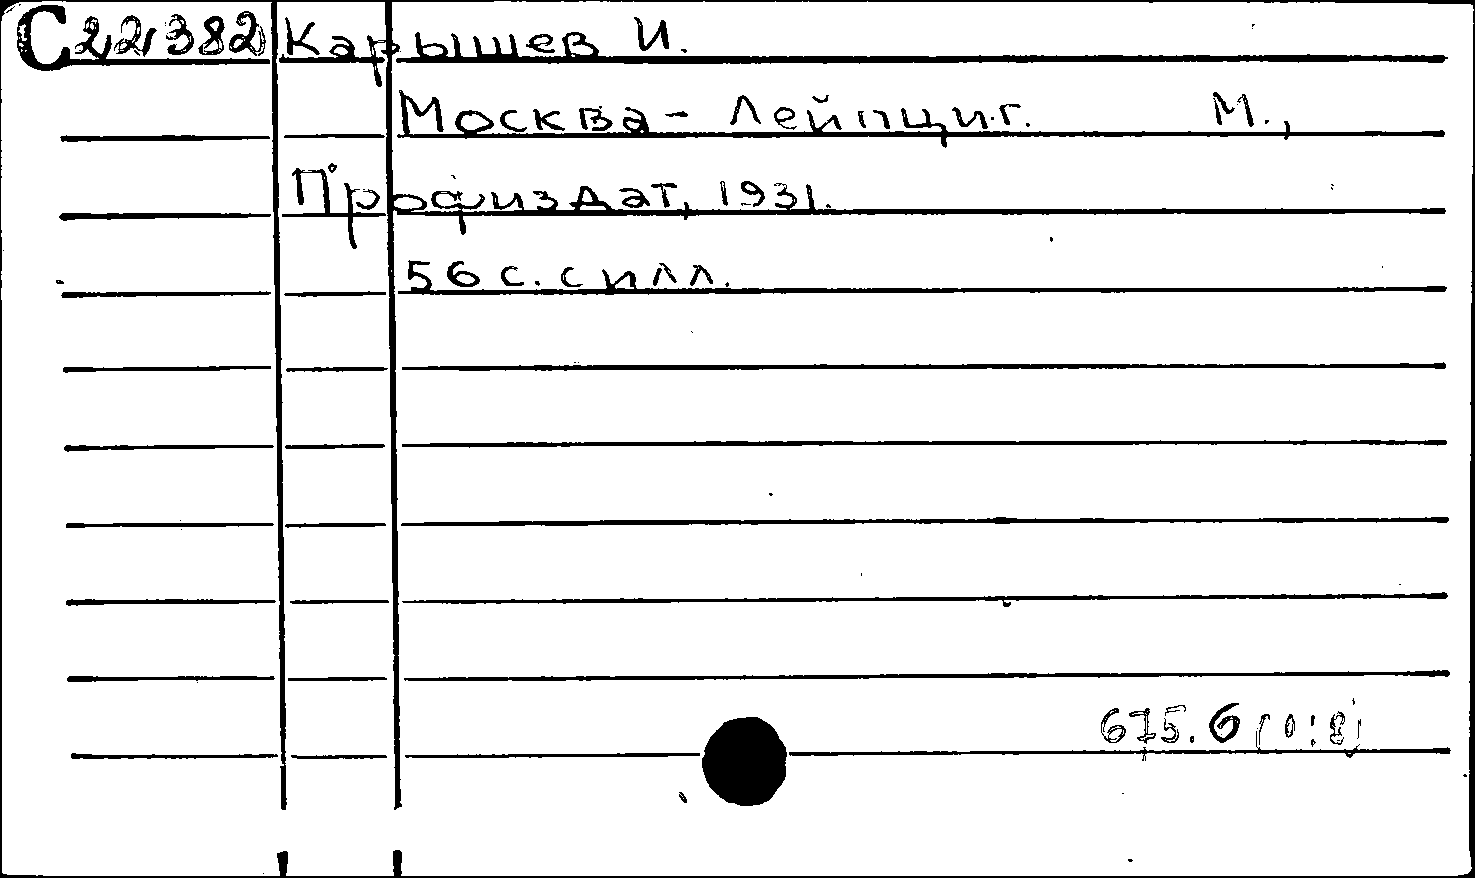 С 22382 Карышев И.
Москва - Лейпциг. М.,
Профиздат, 1931.
56 с. с илл.
675.6 (0:8)